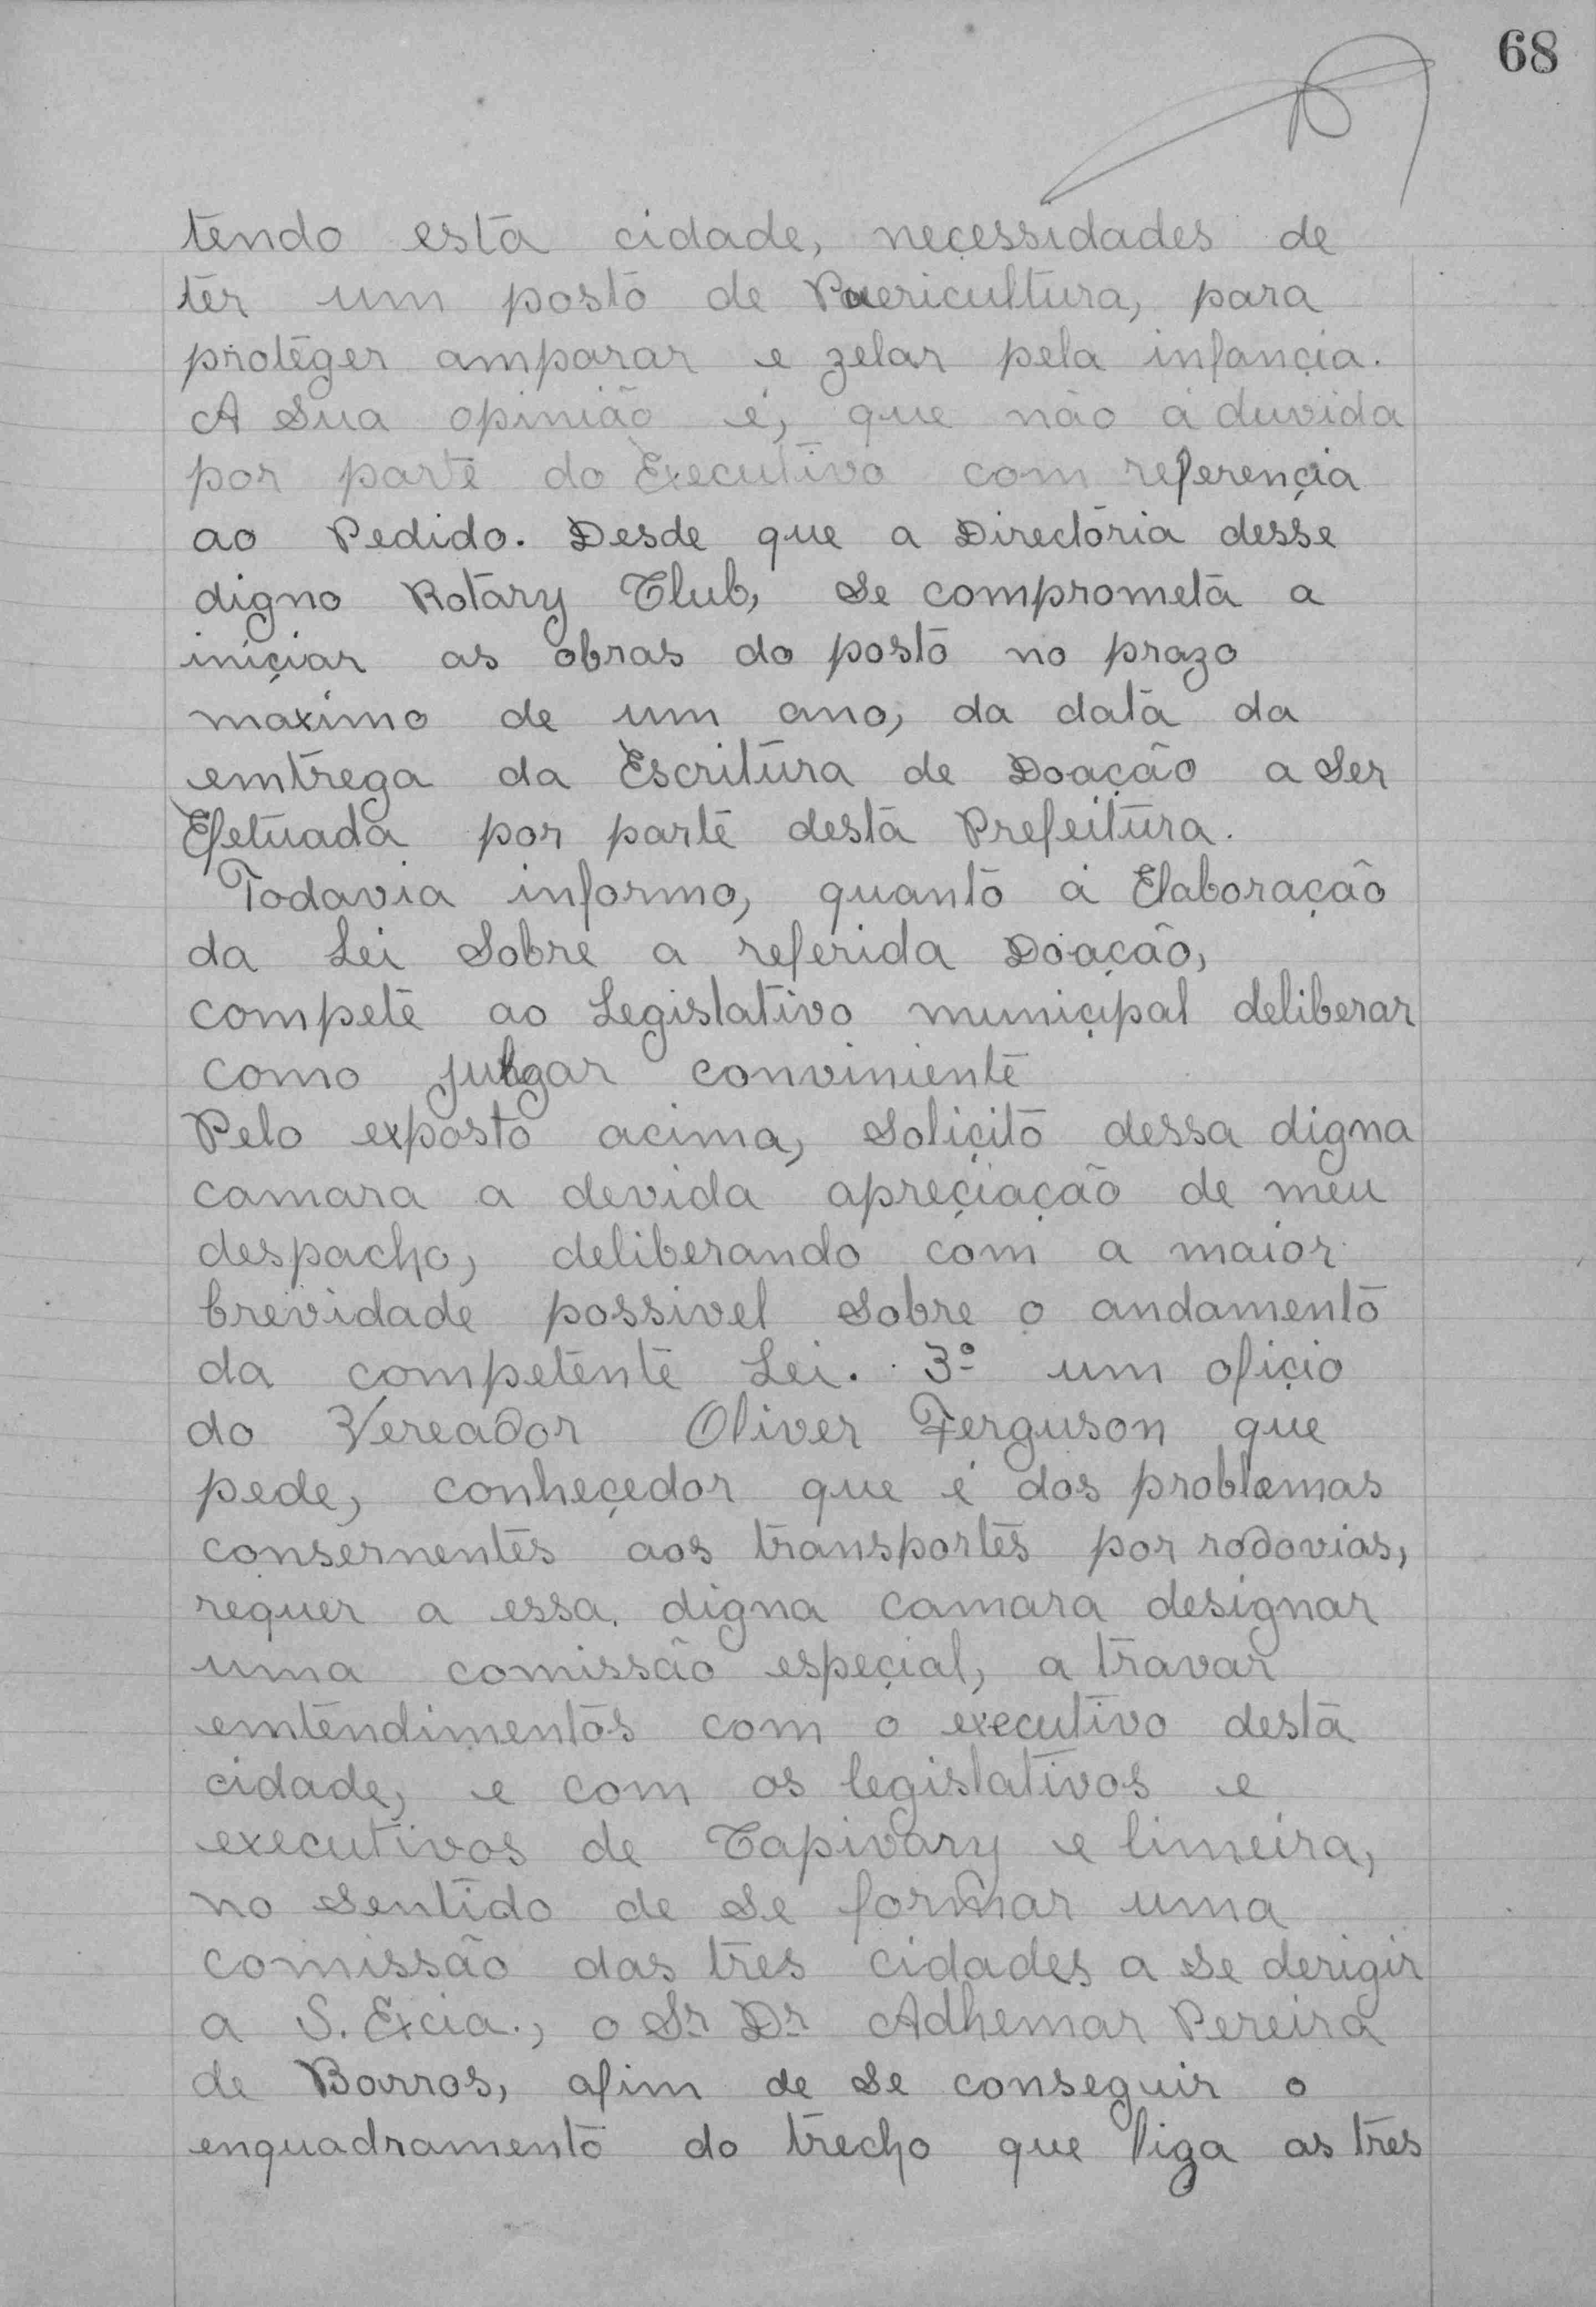 68
tendo esta cidade, necessidades de
ter um posto de Puericultura, para
proteger amparar e zelar pela infancia.
A Sua opinião é, que não á duvida
por parte do Executivo com referencia
ao Pedido. Desde que a Directoria desse
digno Rotary Club, se comprometa a
iniciar as obras do posto no prazo
maximo de um ano, da data da
emtrega da Escritura de Doação a Ser
Efetuada por parte desta Prefeitura.
Todavia informo, quanto á Elaboração
da Lei Sobre a referida Doação,
compete ao Legislativo municipal deliberar
como julgar conviniente
Pelo exposto acima, Solicito dessa digna
camara a devida apreciação de meu
despacho, deliberando com a maior
brevidade possivel Sobre o andamento
da competente Lei. 3º um oficio
do Vereador Oliver Ferguson que
pede, conhecedor que é dos problemas
consernentes aos transportes por rodovias,
requer a essa digna camara designar
uma comissão especial, a travar
emtendimentos com o executivo desta
cidade, e com os legislativos e
executivos de Capivary e limeira,
no Sentido de Se formar uma
comissão das tres cidades a Se derigir
a S. Excia., o Sr Dr Adhemar Pereira
de Barros, afim de Se conseguir o
enquadramento do trecho que liga as tres